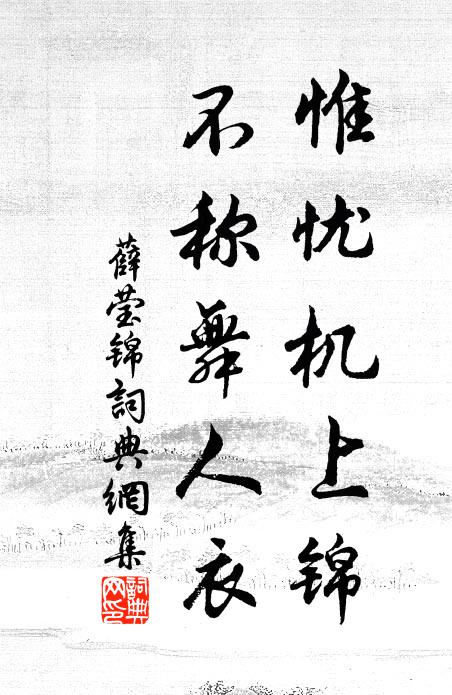 惟忧机上锦
不称舞人衣
薛莹锦詞典網集
詞典
网印